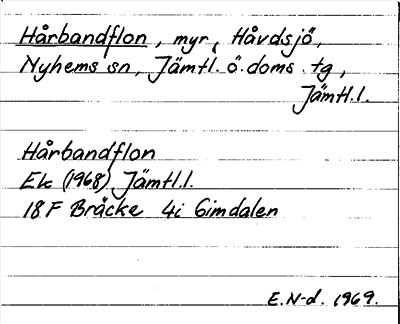 Hårbandflon, myr, Håvdsjö,
Nyhems sn, Jämtl. ö. doms. tg,
Jämtl.l.
Hårbandflon
Ek (1968) Jämtl.l.
18 F Bräcke 4i Gimdalen
E. N-d. 1969.